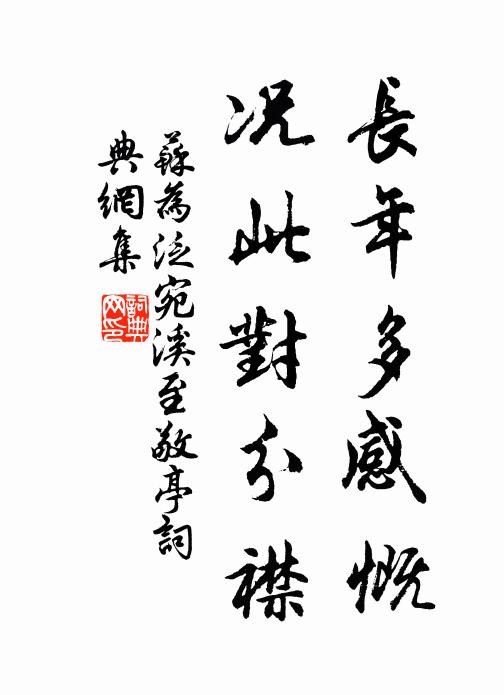 長年多感慨
況此對分襟
蘇為泛宛溪至敬亭詞
典網集
詞典
网印